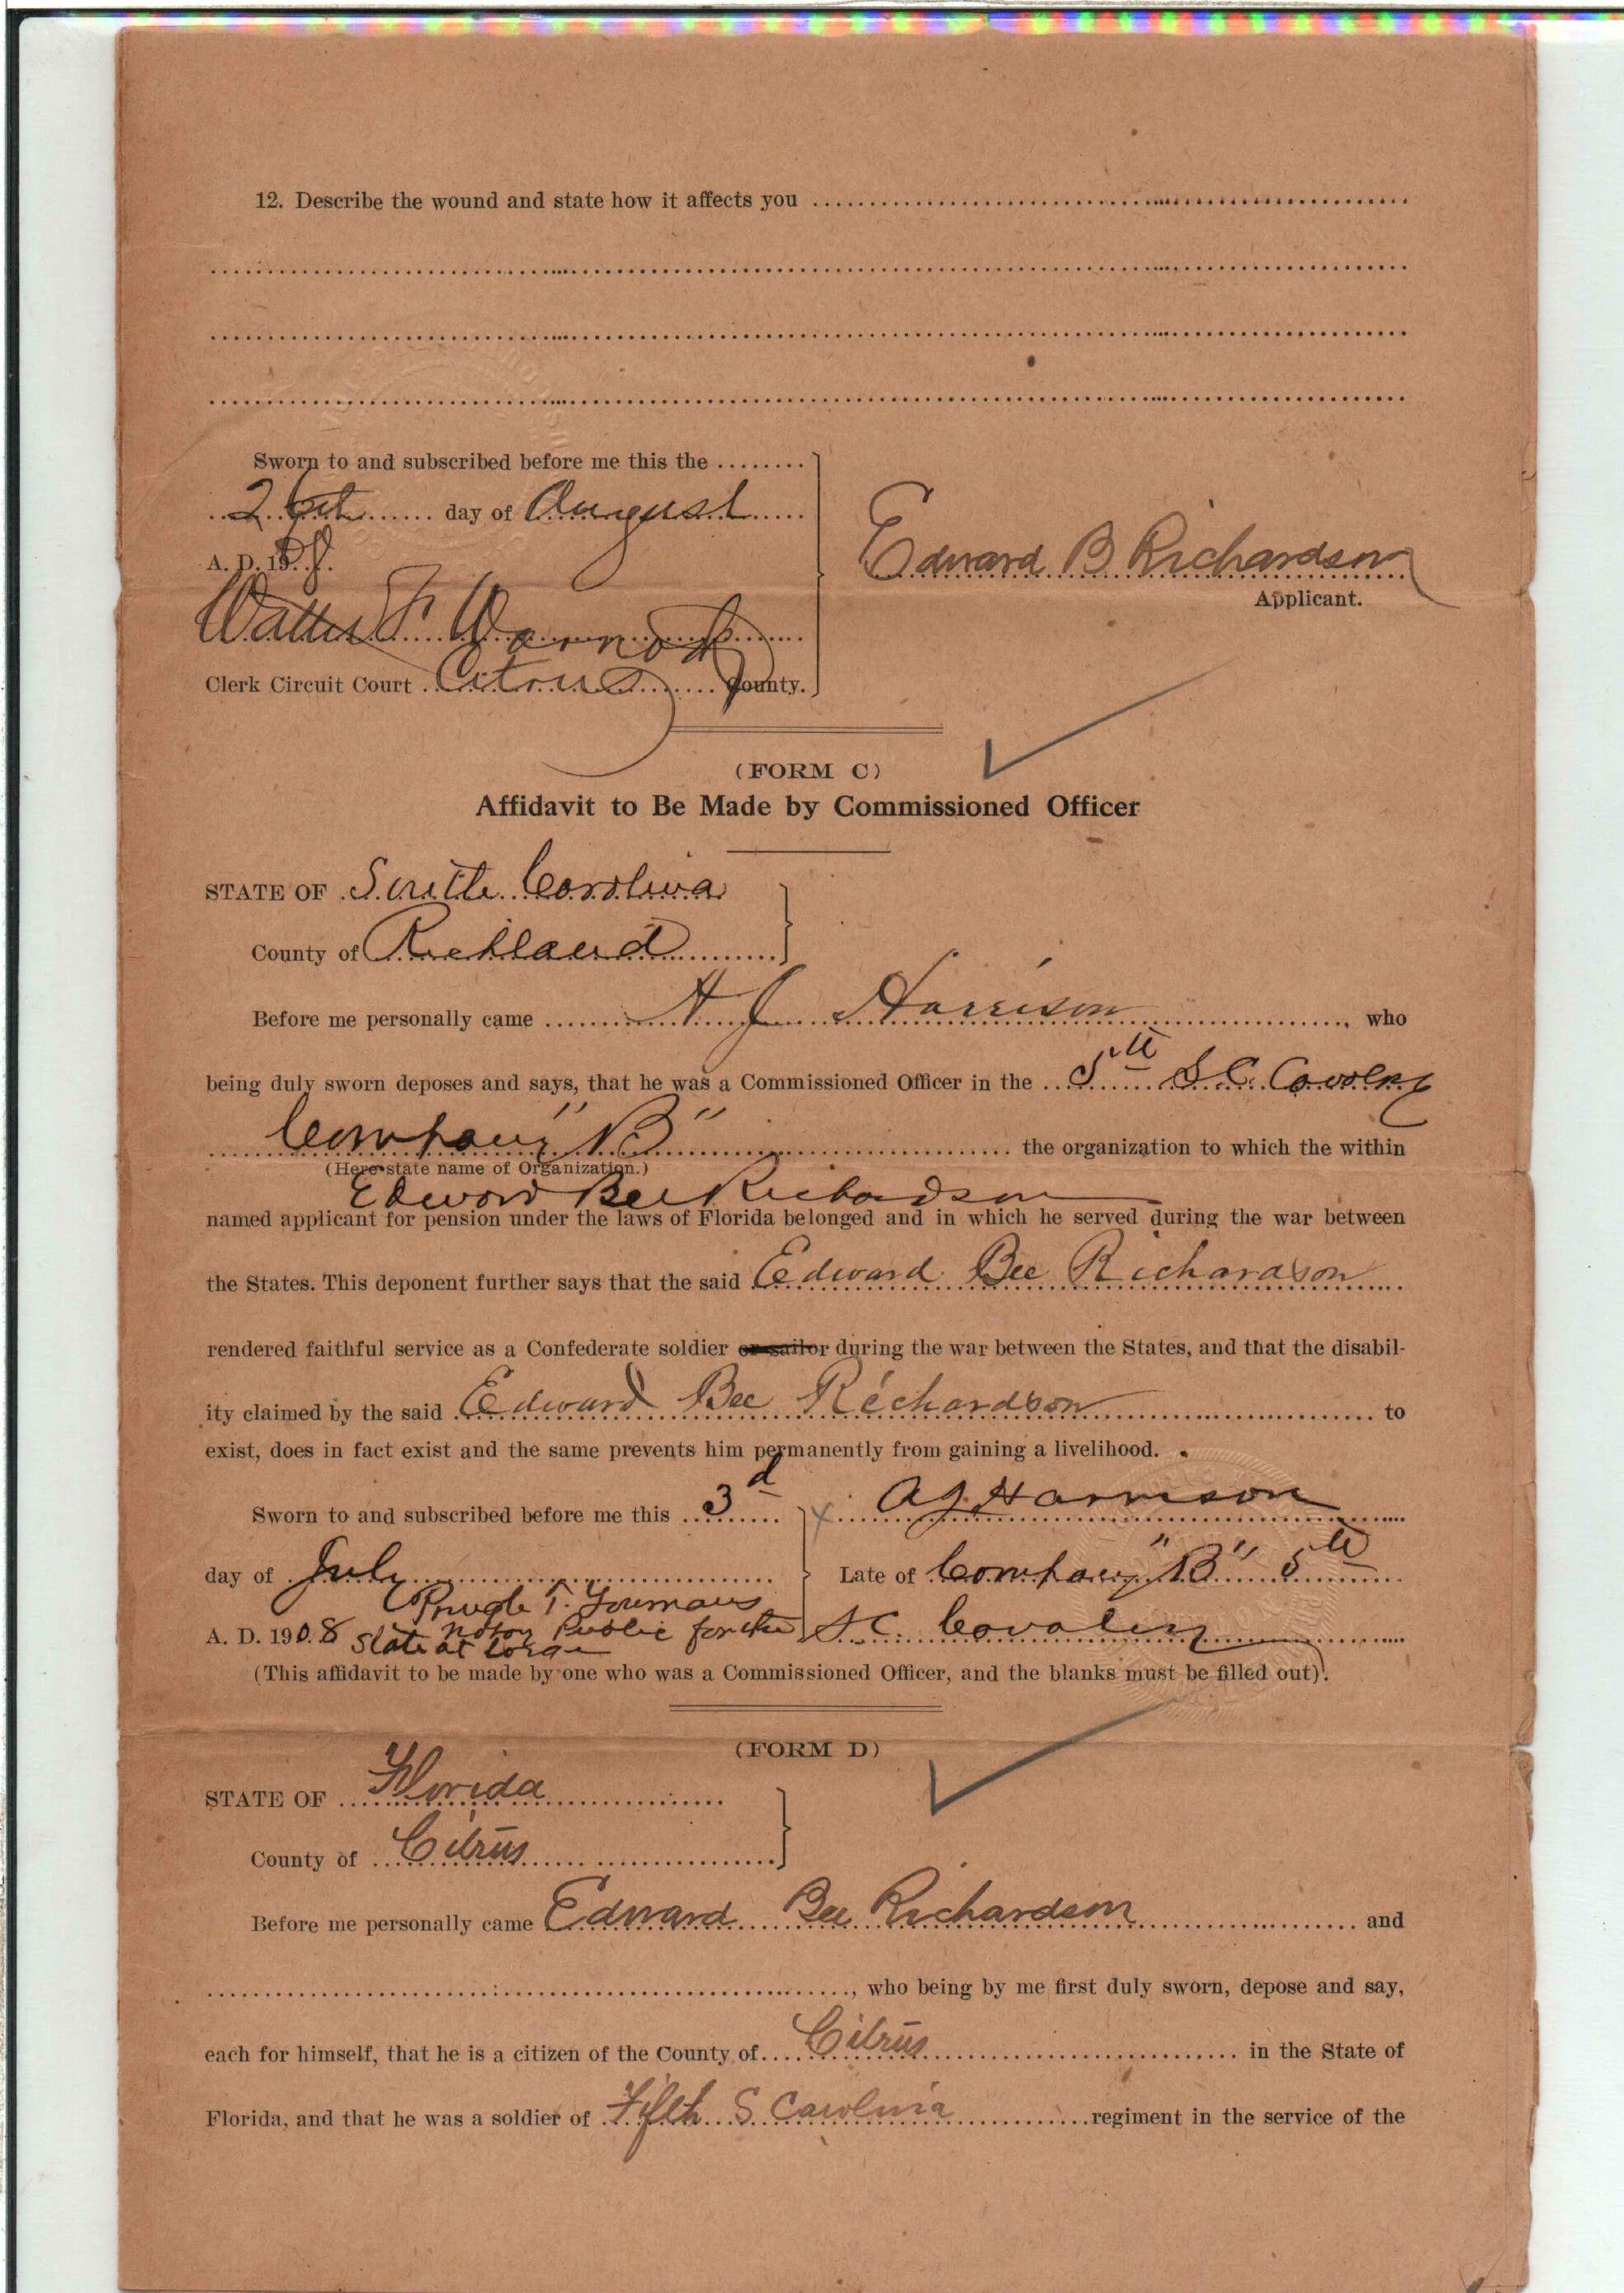 12. Describe the wound and state how it affects you
Sworn to and subscribed before me this the
day of August
A. D. 19
Walter F. Warnock
Clerk Circuit Court Citrus County.
Edward B Richardson
Applicant.
(FORM C)
Affidavit to Be Made by Commissioned Officer
STATE OF South Carolina
County of Richland
Before me personally came A J Harrison, who
being duly sworn deposes and says, that he was a Commissioned Officer in the 5th S C. Cavalry
Company "B" the organization to which the within
(Here state name of Organization.)
Edward Bee Richardson
named applicant for pension under the laws of Florida belonged and in which he served during the war between
the States. This deponent further says that the said Edward Bee Richardson
rendered faithful service as a Confederate soldier or sailor during the war between the States, and that the disabil-
ity claimed by the said Edward Bee Richardson to
exist, does in fact exist and the same prevents him permanently from gaining a livelihood.
Sworn to and subscribed before me this 3d
day of July
T. Youmans
A. D. 1908 Notary Public for the
State at Large
x A J Harrison
Late of Company "B" 5th
S. C. Cavalry
(This affidavit to be made by one who was a Commissioned Officer, and the blanks must be filled out).
(FORM D)
STATE OF Florida
County of Citrus
Before me personally came Edward Bee Richardson and
, who being by me first duly sworn, depose and say,
each for himself, that he is a citizen of the County of Citrus in the State of
Florida, and that he was a soldier of Fifth S Carolina regiment in the service of the